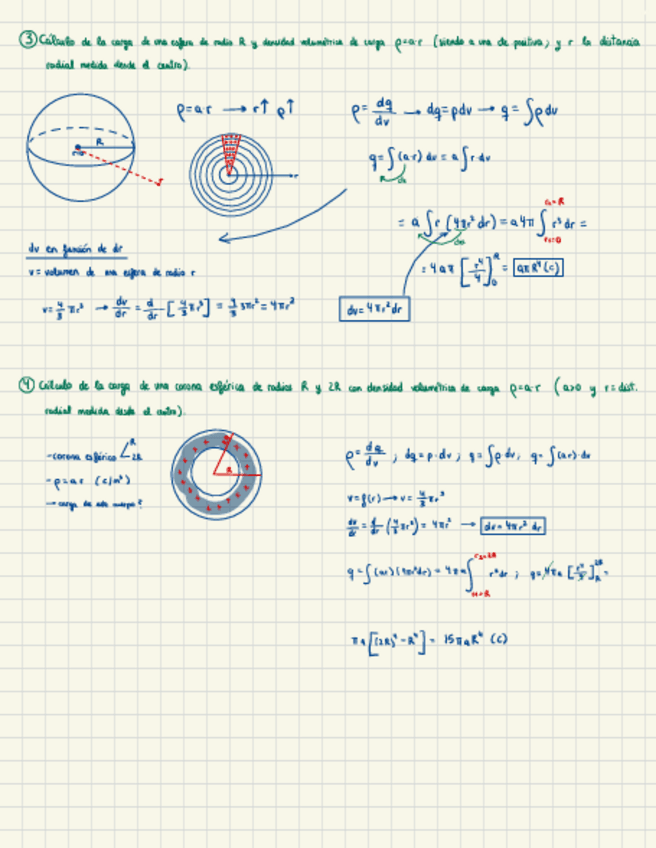 ③ Cálculo de la carga de una esfera de radio R y densidad volumétrica de carga ρ=a·r (siendo a una cte positiva; y r la distancia
radial medida desde el centro).
ρ=a·r → r↑ ρ↑
ρ = dq/dv → dq=ρdv → q = ∫ρdv
R
r
q=∫(a·r) dv = a∫r·dv
= a∫r (4πr²dr) = a4π ∫ r³dr =
dv en función de dr
v = volumen de una esfera de radio r
= 4aπ [r⁴/4]₀ᴿ = aπR⁴ (C)
v = 4/3 πr³ → dv/dr = d/dr [4/3 πr³] = 4/3 3πr² = 4πr²
dv = 4πr² dr
④ Cálculo de la carga de una corona esférica de radios R y 2R con densidad volumétrica de carga ρ=a·r (a>0 y r=dist.
radial medida desde el centro).
- corona esférica R 2R
R
ρ = dq/dv ; dq=ρ·dv ; q=∫ρ·dv ; q=∫(ar)·dv
- ρ=a·r (C/m³)
→ carga de este cuerpo?
v=f(r) → v = 4/3 πr³
dv/dr = d/dr (4/3 πr³) = 4πr² → dv = 4πr² dr
q=∫(ar)(4πr²dr) = 4πa ∫ r³dr ;
πa[(2R)⁴ - R⁴] = 15πaR⁴ (C)